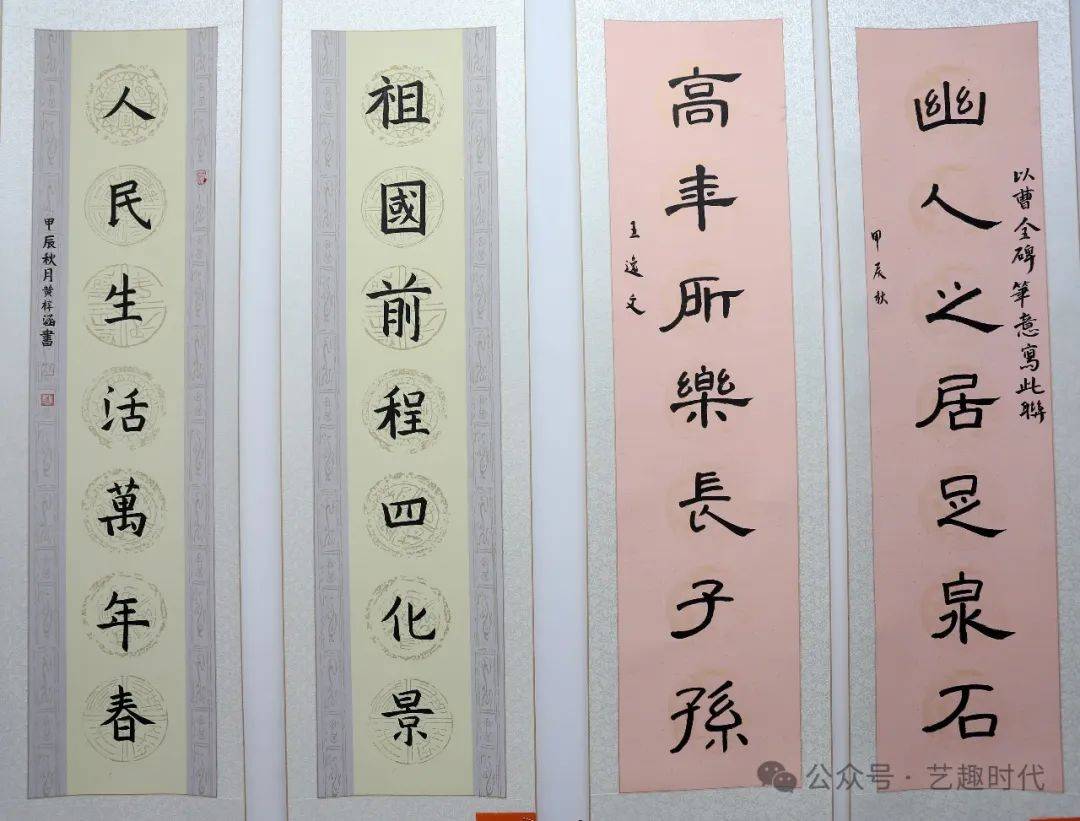 以曹全碑筆意寫此聯
幽人之居足泉石
甲辰秋
高年所樂長子孫
王逸文
祖國前程四化景
人民生活萬年春
甲辰秋月黄梓涵書
公众号·艺趣时代